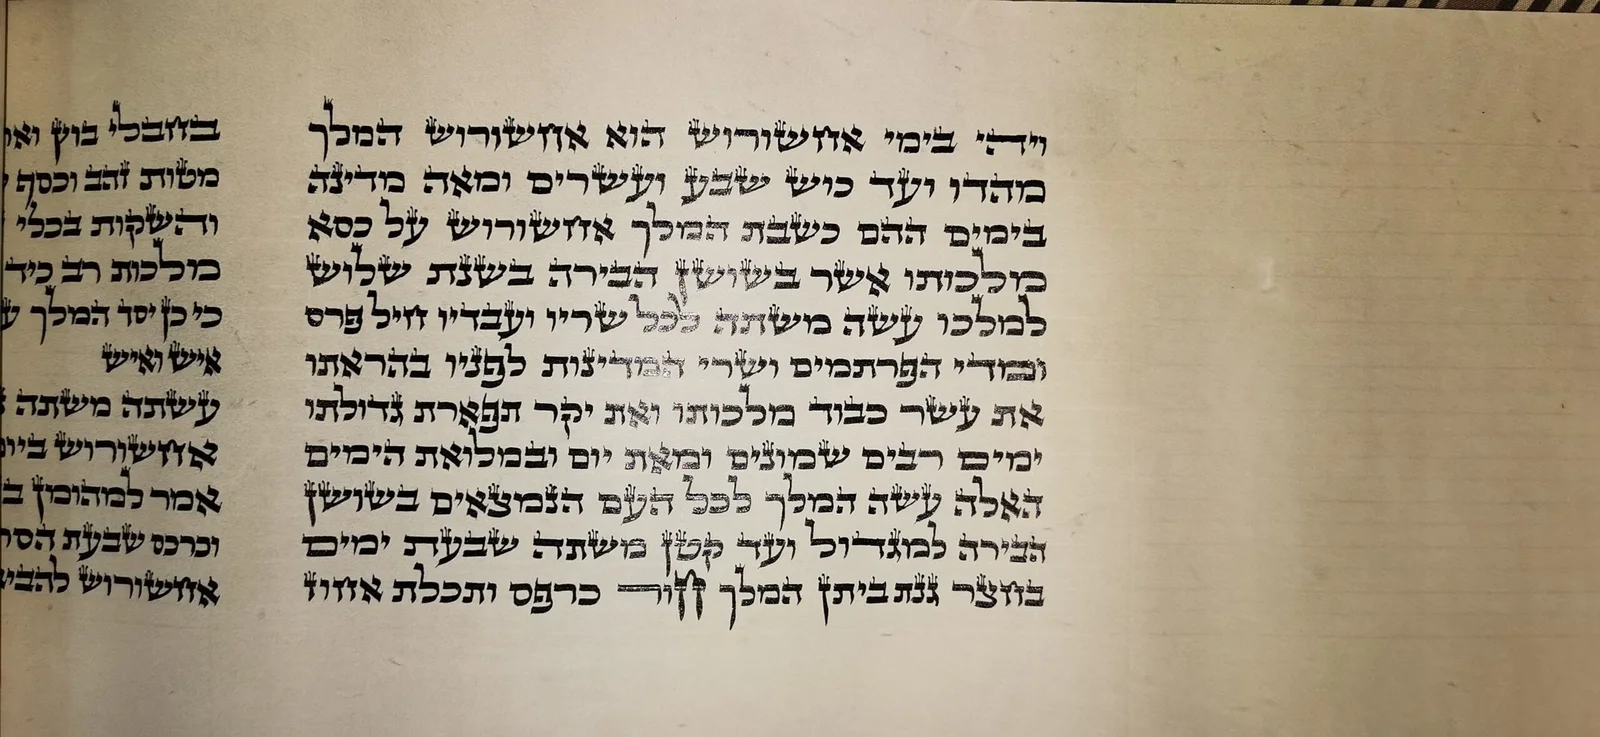 ויהי בימי אחשורוש הוא אחשורוש המלך
מהדו ועד כוש שבע ועשרים ומאה מדינה
בימים ההם כשבת המלך אחשורוש על כסא
מלכותו אשר בשושן הבירה בשנת שלוש
למלכו עשה משתה לכל שריו ועבדיו חיל פרס
ומדי הפרתמים ושרי המדינות לפניו בהראתו
את עשר כבוד מלכותו ואת יקר תפארת גדולתו
ימים רבים שמונים ומאת יום ובמלואת הימים
האלה עשה המלך לכל העם הנמצאים בשושן
הבירה למגדול ועד קטן משתה שבעת ימים
בחצר גנת ביתן המלך חור כרפס ותכלת אחוז
בחבלי בוץ
מטות זהב וכסף
והשקות בכלי
מלכות רב כיד
כי כן יסד המלך
איש ואיש
עשתה משתה
אחשורוש
אמר למהומן
וכרכס שבעת
אחשורוש